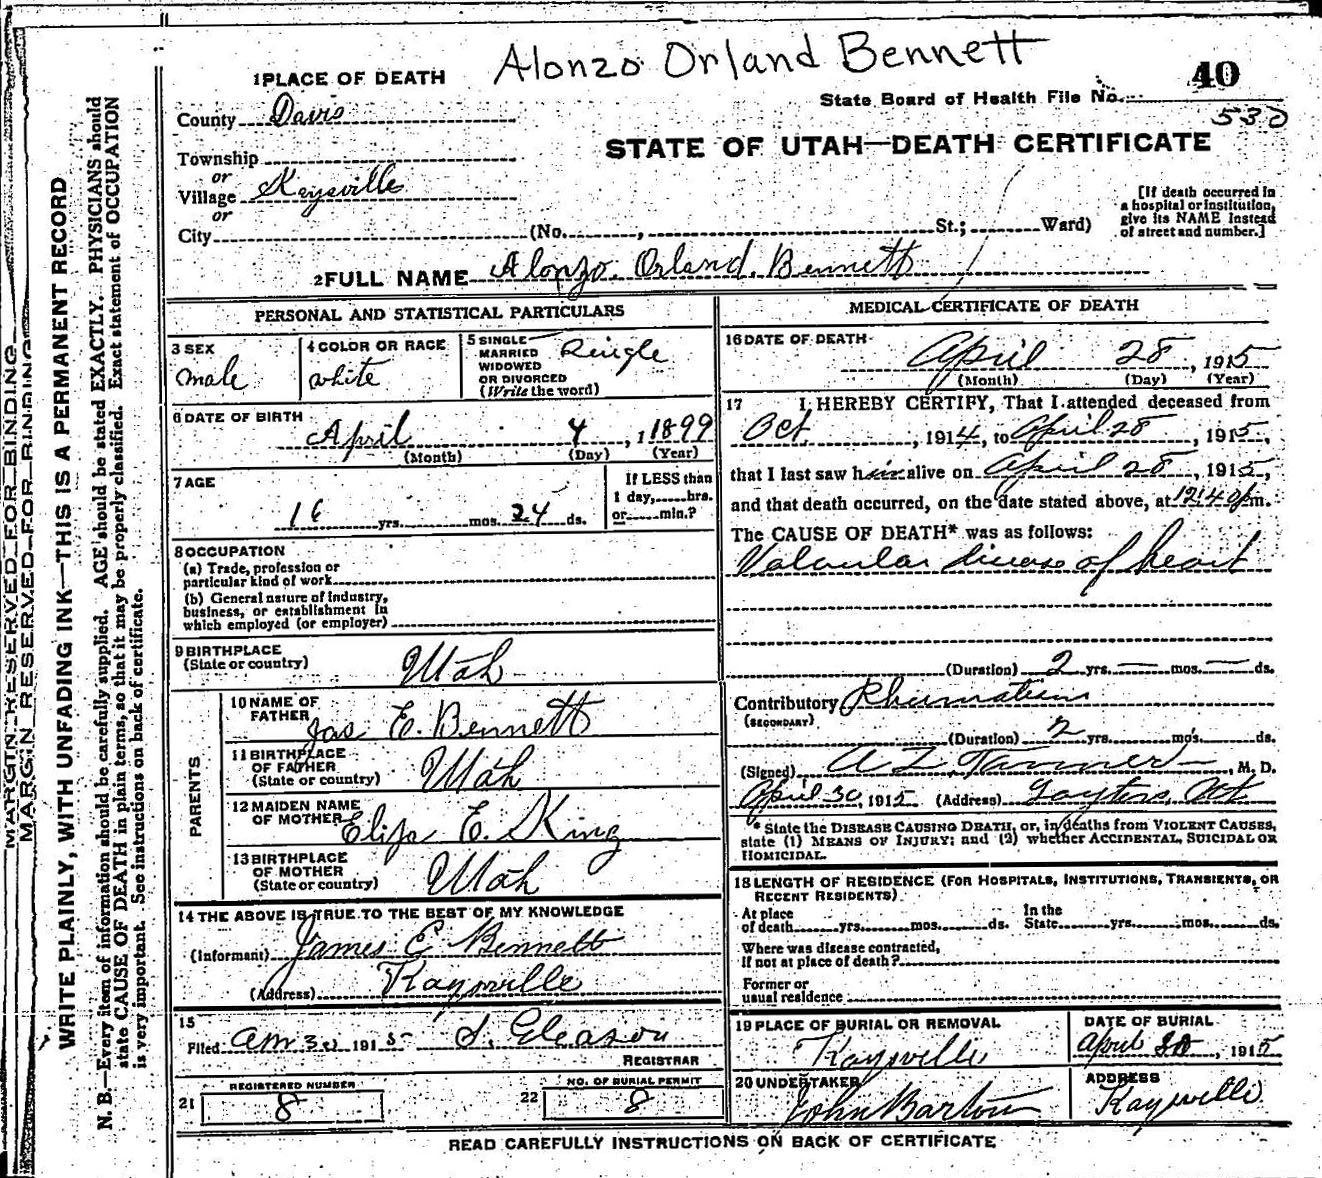 Alonzo Orland Bennett
1 PLACE OF DEATH
40
State Board of Health File No.
530
County Davis
STATE OF UTAH—DEATH CERTIFICATE
Township
or
Village Kaysville
or
City (No. , St.; Ward)
[If death occurred in
a hospital or institution,
give its NAME instead
of street and number.]
2 FULL NAME Alonzo Orland Bennett
PERSONAL AND STATISTICAL PARTICULARS
3 SEX
male
4 COLOR OR RACE
white
5 SINGLE
MARRIED
WIDOWED
OR DIVORCED
(Write the word)
Single
6 DATE OF BIRTH
April 4, 1 1899
(Month) (Day) (Year)
7 AGE
16 yrs. mos. 24 ds.
If LESS than
1 day, hrs.
or min.?
8 OCCUPATION
(a) Trade, profession or
particular kind of work
(b) General nature of industry,
business, or establishment in
which employed (or employer)
9 BIRTHPLACE
(State or country)
Utah
PARENTS
10 NAME OF
FATHER
Jas E. Bennett
11 BIRTHPLACE
OF FATHER
(State or country)
Utah
12 MAIDEN NAME
OF MOTHER
Eliza E. King
13 BIRTHPLACE
OF MOTHER
(State or country)
Utah
14 THE ABOVE IS TRUE TO THE BEST OF MY KNOWLEDGE
(Informant) James E Bennett
(Address) Kaysville
15
Filed Apr 30 1915 S. Gleason
REGISTRAR
REGISTERED NUMBER
21 8
NO. OF BURIAL PERMIT
22 8
MEDICAL CERTIFICATE OF DEATH
16 DATE OF DEATH
April 28, 1915
(Month) (Day) (Year)
17 I HEREBY CERTIFY, That I attended deceased from
Oct, 1914, to April 28, 1915,
that I last saw him alive on April 28, 1915,
and that death occurred, on the date stated above, at 12:40 p m.
The CAUSE OF DEATH* was as follows:
Valvular disease of heart
(Duration) 2 yrs. — mos. — ds.
Contributory Rhumatism
(SECONDARY)
(Duration) 2 yrs. mos. ds.
(Signed) A Z Tanner, M. D.
April 30, 1915 (Address) Layton, Ut
* State the DISEASE CAUSING DEATH, or, in deaths from VIOLENT CAUSES,
state (1) MEANS OF INJURY; and (2) whether ACCIDENTAL, SUICIDAL OR
HOMICIDAL.
18 LENGTH OF RESIDENCE (FOR HOSPITALS, INSTITUTIONS, TRANSIENTS, OR
RECENT RESIDENTS)
At place
of death yrs. mos. ds.
In the
State yrs. mos. ds.
Where was disease contracted,
if not at place of death?
Former or
usual residence
19 PLACE OF BURIAL OR REMOVAL
Kaysville
DATE OF BURIAL
April 30, 1915
20 UNDERTAKER
John Barton
ADDRESS
Kaysville
READ CAREFULLY INSTRUCTIONS ON BACK OF CERTIFICATE
MARGIN RESERVED FOR BINDING
MARGIN RESERVED FOR BINDING
WRITE PLAINLY, WITH UNFADING INK—THIS IS A PERMANENT RECORD
N. B.—Every item of information should be carefully supplied. AGE should be stated EXACTLY. PHYSICIANS should
state CAUSE OF DEATH in plain terms, so that it may be properly classified. Exact statement of OCCUPATION
is very important. See instructions on back of certificate.